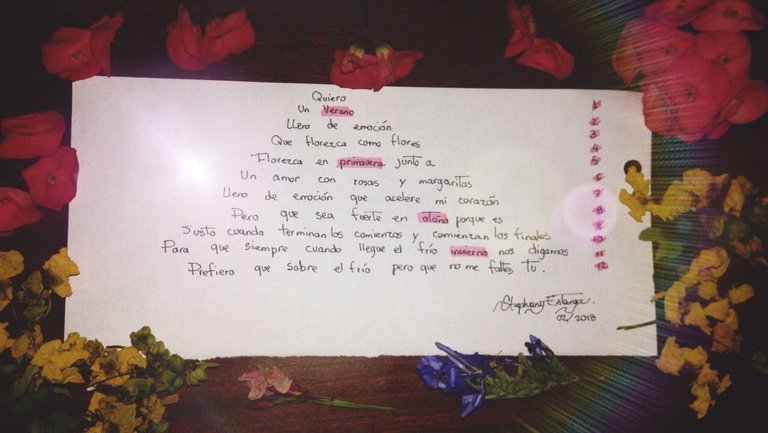 Quiero
Un Verano
Lleno de emoción
Que florezca como flores
Florezca en primavera junto a
Un amor con rosas y margaritas
Lleno de emoción que acelere mi corazón
Pero que sea fuerte en otoño porque es
Justo cuando terminan los comienzos y comienzan los finales
Para que siempre cuando llegue el frío invierno nos digamos
Prefiero que sobre el frío pero que no me faltes Tú.
1
2
3
4
5
6
7
8
9
10
11
12
Stephany
02/2018